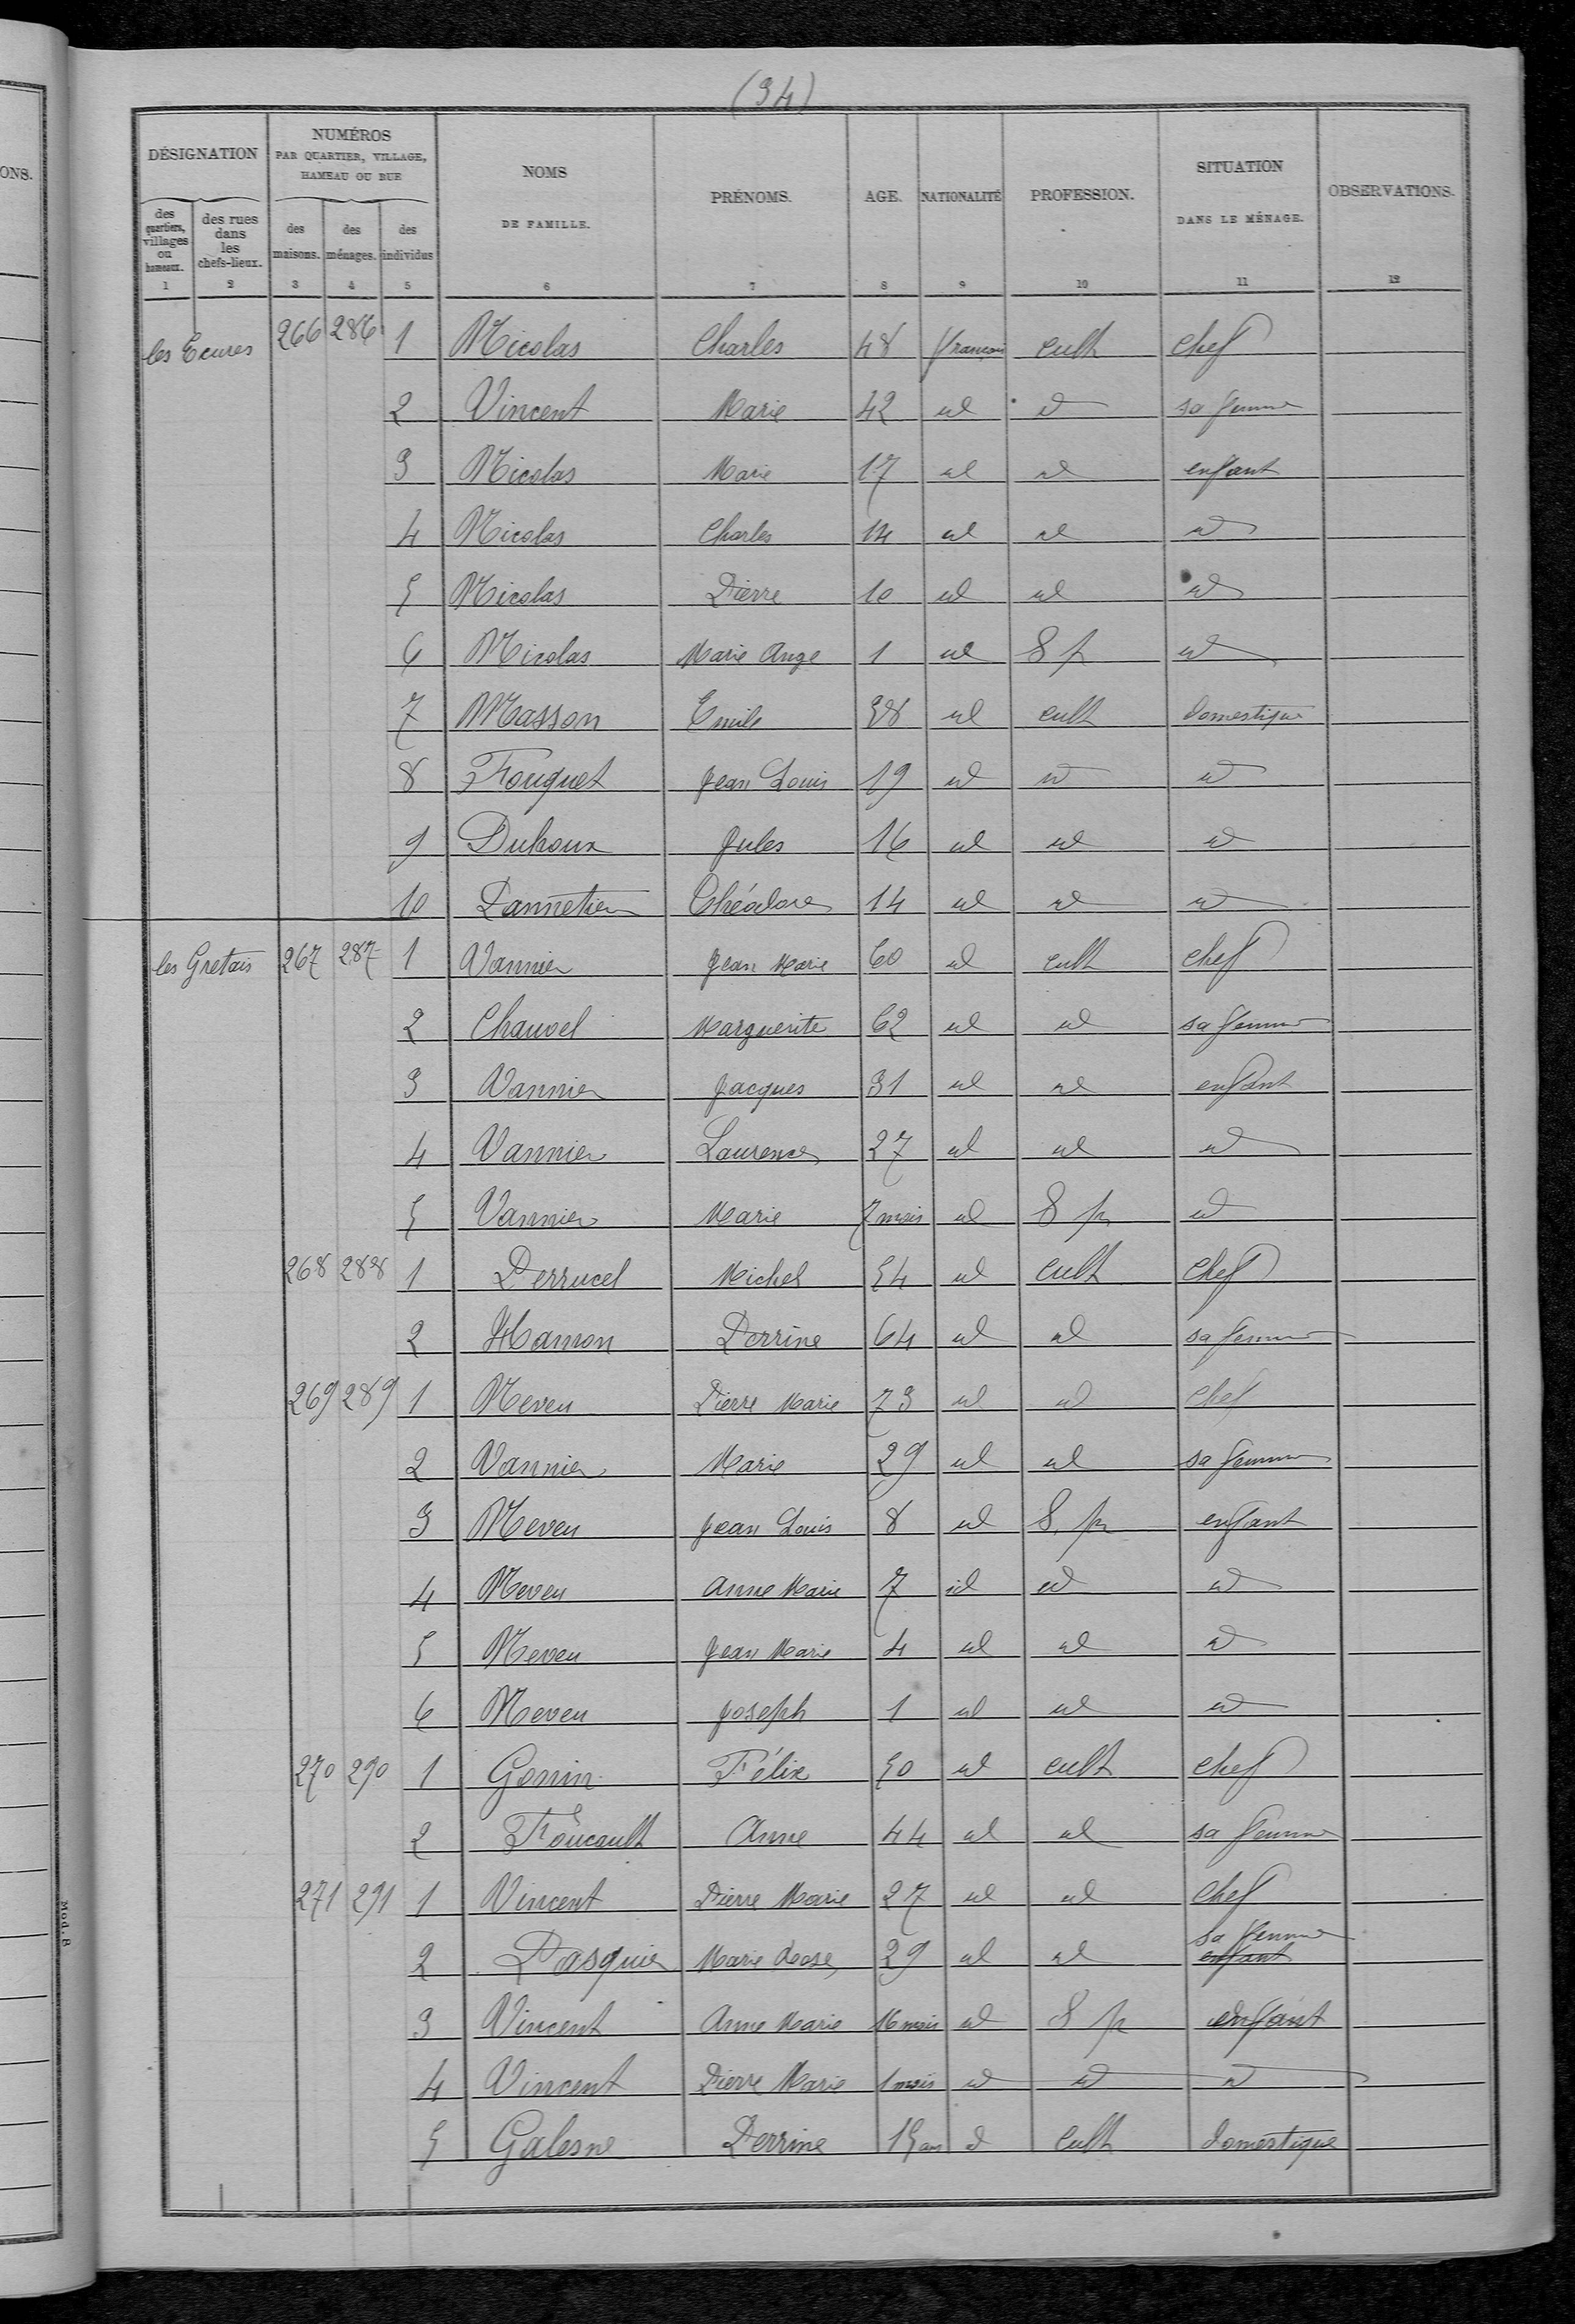 ONS.
(34)
DÉSIGNATION
NUMÉROS
PAR QUARTIER, VILLAGE,
HAMEAU OU RUE
NOMS
DE FAMILLE.
PRÉNOMS.
AGE.
NATIONALITÉ
PROFESSION.
SITUATION
DANS LE MÉNAGE.
OBSERVATIONS.
des quartiers, villages ou hameaux.
des rues dans les chefs-lieux.
des maisons.
des ménages.
des individus
1 2 3 4 5 6 7 8 9 10 11 12
les Ecures 266 286 1 Nicolas Charles 48 français cult chef
2 Vincent Marie 42 id id sa femme
3 Nicolas Marie 17 id id enfant
4 Nicolas Charles 14 id id id
5 Nicolas Pierre 10 id id id
6 Nicolas Marie Ange 1 id S p id
7 Masson Emile 38 id cult domestique
8 Fouquet Jean Louis 19 id id id
9 Duhoux Jules 16 id id id
10 Pannetier Théodore 14 id id id
les Gretais 267 287 1 Vannier Jean Marie 60 id cult chef
2 Chauvel Marguerite 62 id id sa femme
3 Vannier Jacques 31 id id enfant
4 Vannier Laurence 27 id id id
5 Vannier Marie 7 mois id S p id
268 288 1 Perrucel Michel 54 id cult chef
2 Hamon Perrine 64 id id sa femme
269 289 1 Neveu Pierre Marie 73 id id chef
2 Vannier Marie 29 id id sa femme
3 Neveu Jean Louis 8 id S. p enfant
4 Neveu Anne Marie 7 id id id
5 Neveu Jean Marie 4 id id id
6 Neveu Joseph 1 id id id
270 290 1 Gonin Félix 50 id cult chef
2 Foucault Anne 44 id id sa femme
271 291 1 Vincent Pierre Marie 27 id id chef
2 Pasquier Marie Rose 29 id id enfant sa femme
3 Vincent Anne Marie 16 mois id S p enfant
4 Vincent Pierre Marie 1 mois id id id
5 Galesne Perrine 15 ans id cult domestique
Mod. B